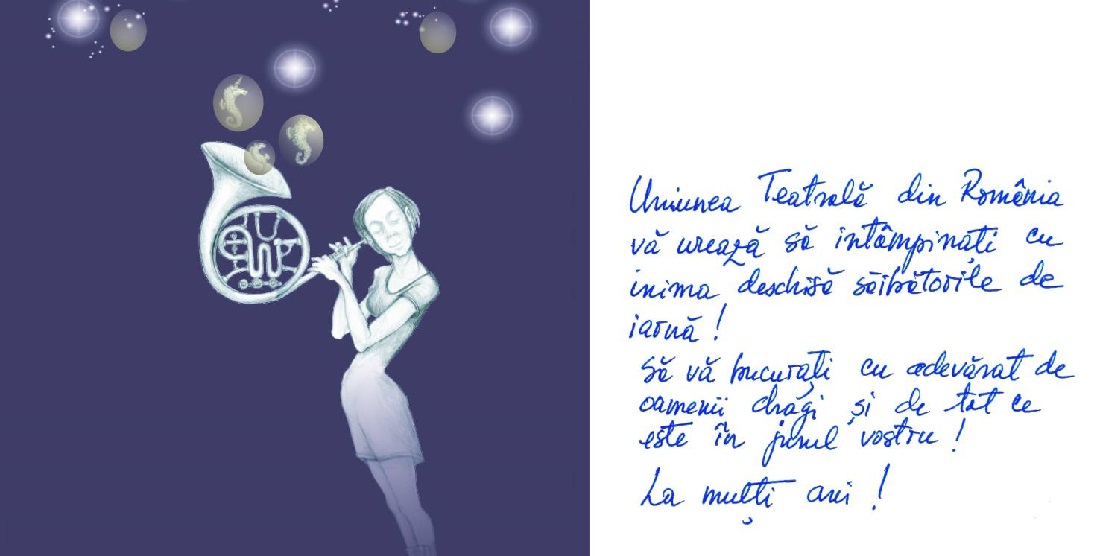 Uniunea Teatrală din România
vă urează să intâmpinați cu
inima deschisă sărbătorile de
iarnă !
Să vă bucurați cu adevărat de
oamenii dragi și de tot ce
este în jurul vostru !
La mulți ani !